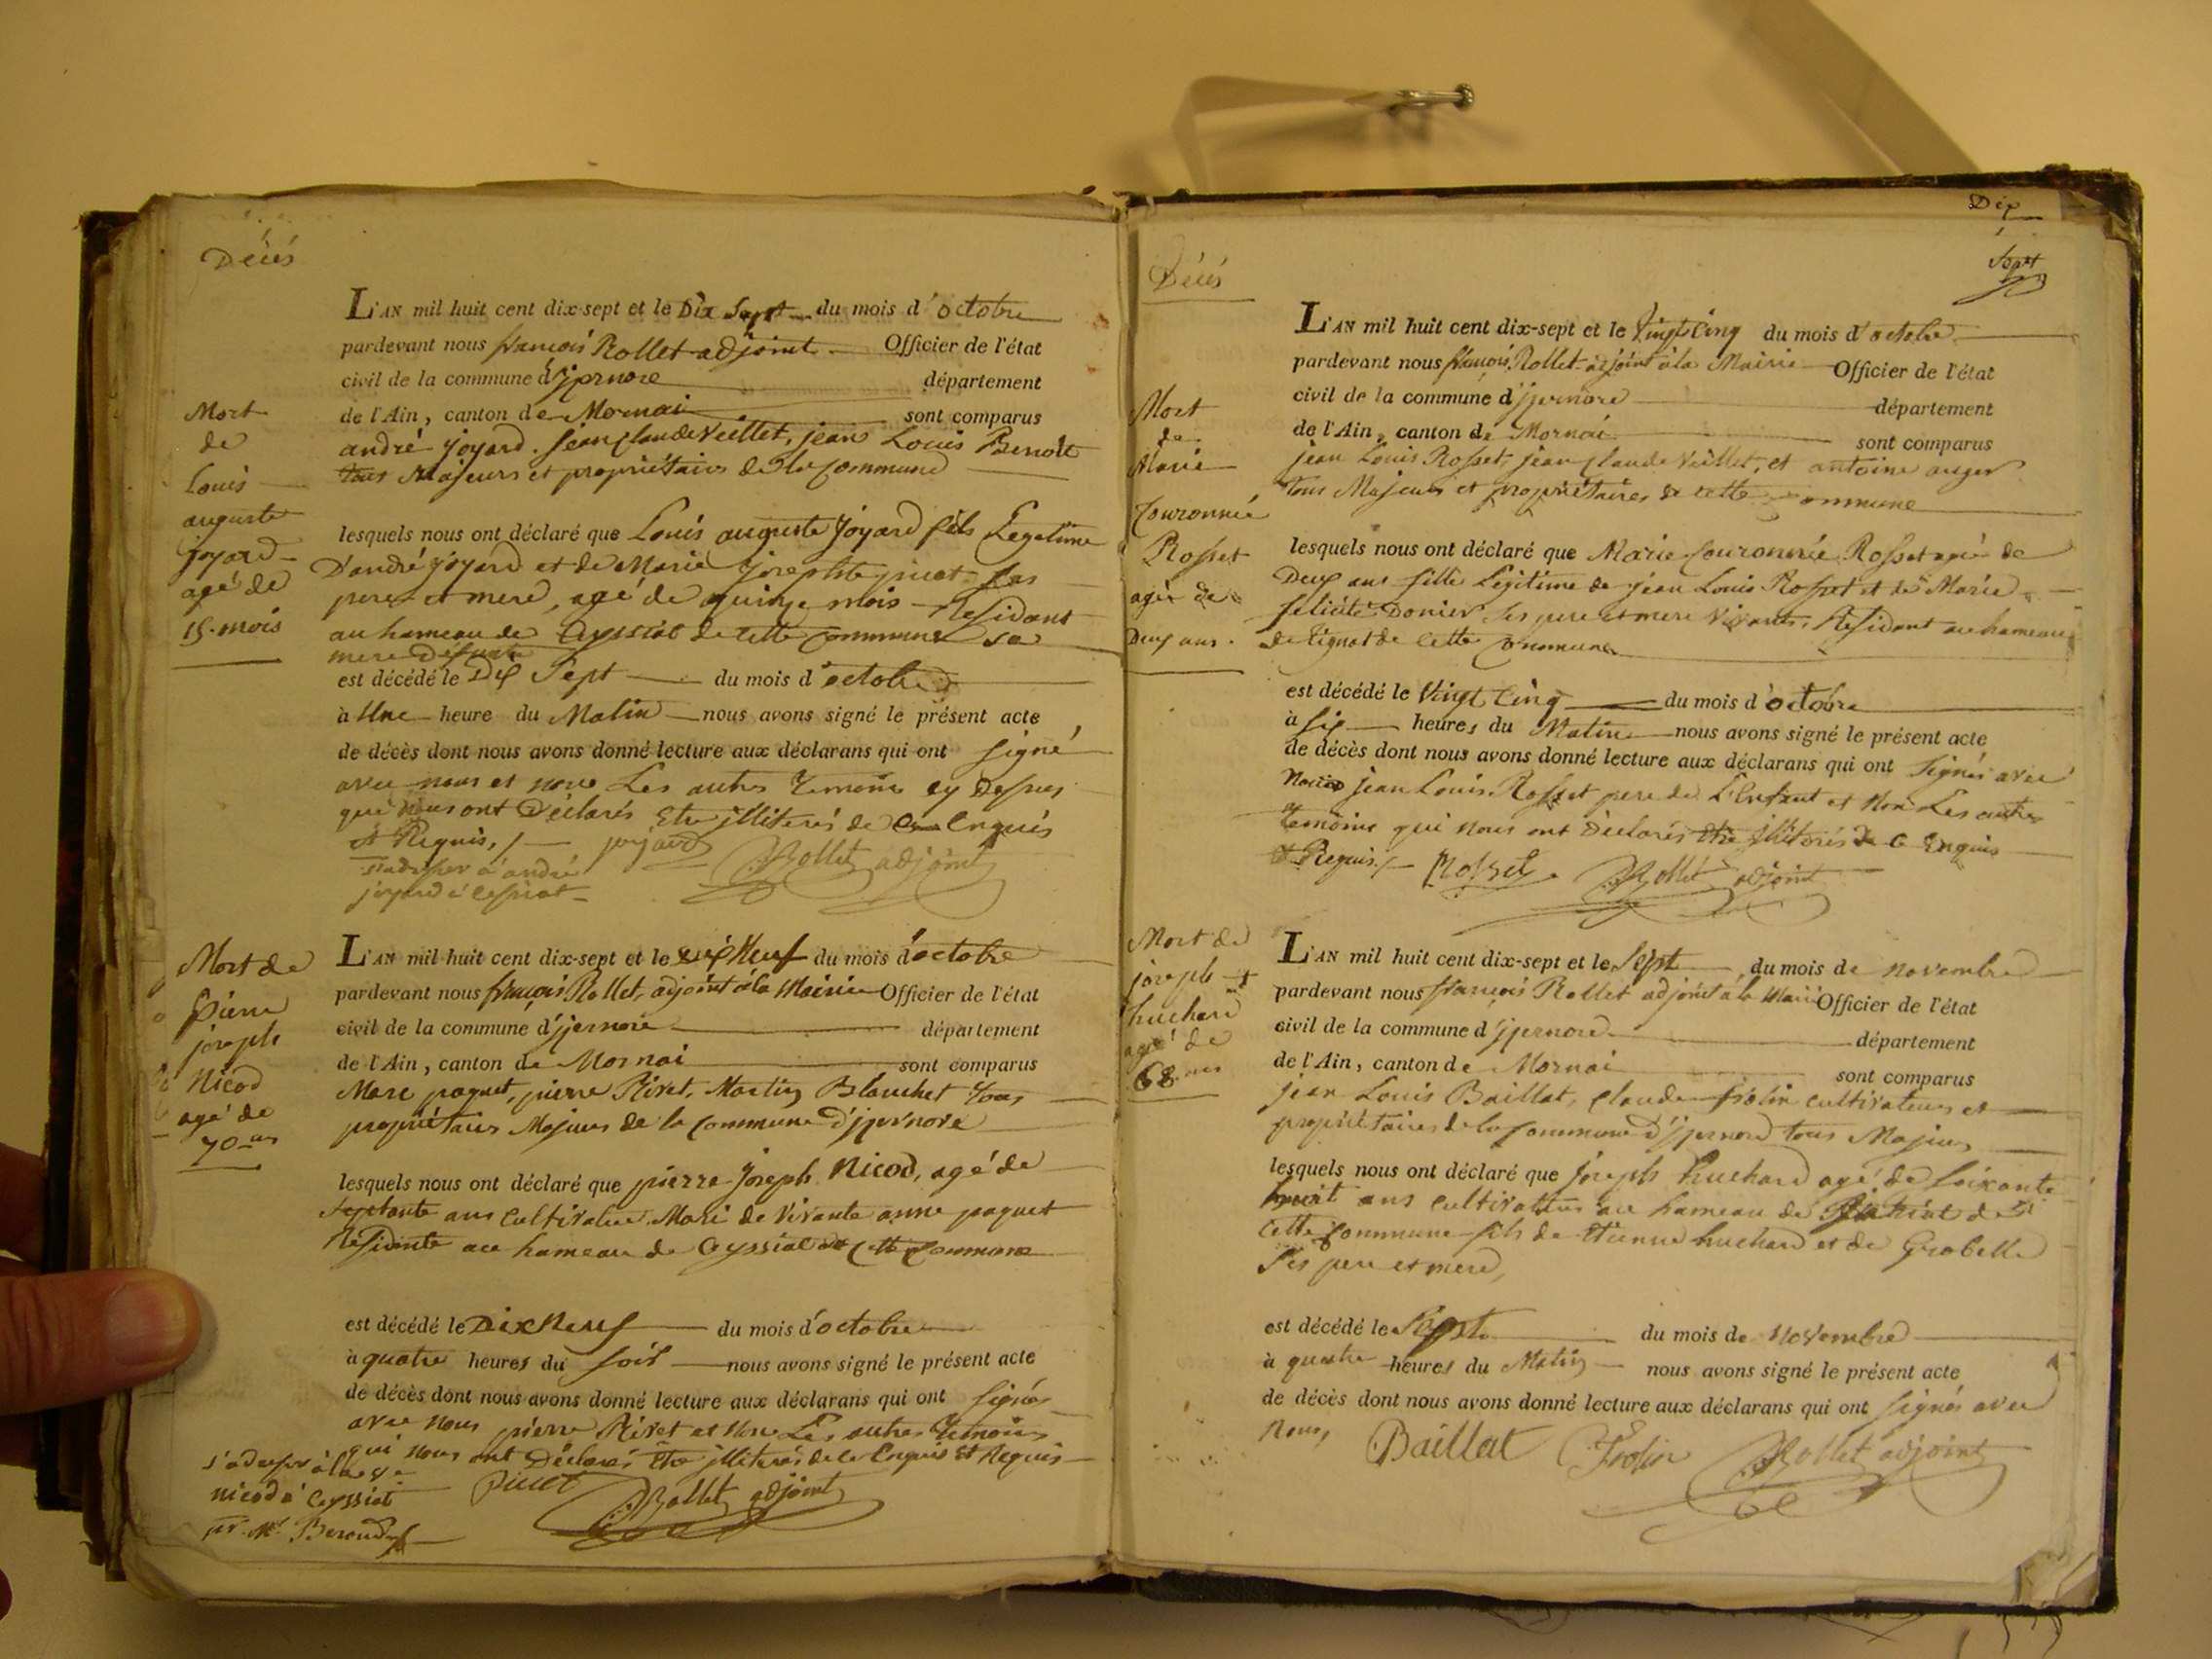 Décés
Mort
de
Louis
auguste
joyard
agé de
15. mois
L'AN mil huit cent dix-sept et le Dix Sept du mois d'octobre
pardevant nous françois Rollet adjoint Officier de l'état
civil de la commune d'jjernore département
de l'Ain, canton de Mornai sont comparus
andré joyard. jean claude Veillet, jean Louis Benoit
tous Majeurs et propriétaires de la commune
lesquels nous ont déclaré que Louis auguste joyard fils Legetime
D'andré joyard et de Marie josephte ses
pere et mere, agé de quinze mois Residant
au hameau de Ceyssiat de cette commune sa
mere Defunte
est décédé le Dix Sept du mois d'octobre
à Une heure du Matin nous avons signé le présent acte
de décès dont nous avons donné lecture aux déclarans qui ont signé
avec nous et non Les autres Temoins cy Dessus
que nous ont Déclarés Etre illiterés de ce Enquis
et Requis, joyard Rollet adjoint
s'adresser à andré
joyard à Cessiat
Mort de
Pierre
joseph
Nicod
agé de
70 ans
L'AN mil huit cent dix-sept et le dix Neuf du mois d'octobre
pardevant nous françois Rollet, adjoint à la Mairie Officier de l'état
civil de la commune d'jjernore département
de l'Ain, canton de Mornai sont comparus
Marc paquet, pierre Piret, Martin Blanchet Tous
propriétaires Majeurs de la commune d'jjernore
lesquels nous ont déclaré que pierre joseph Nicod, agé de
Septante ans Cultivateur Mari de Vivante anne paquet
Residante au hameau de Ceyssiat de cette commune
est décédé le Dix Neuf du mois d'octobre
à quatre heures du soir nous avons signé le présent acte
de décès dont nous avons donné lecture aux déclarans qui ont signés
avec nous pierre Piret et Non Les autres Temoins
qui nous ont Déclarés Etre illiterés de ce Enquis Et Requis
s'adresser à la
nicod à Ceyssiat
Rollet adjoint
Dix
Sept
Décés
Mort
de
Marie
Couronnée
Rosset
agée de
Deux ans.
L'AN mil huit cent dix-sept et le Vingt Cinq du mois d'octobre
pardevant nous françois Rollet adjoint à la Mairie Officier de l'état
civil de la commune d'jjernore département
de l'Ain, canton de Mornai sont comparus
jean Louis Rosset, jean claude Veillet, et antoine auger
tous Majeurs et propriétaires de cette commune
lesquels nous ont déclaré que Marie Couronnée Rosset agée de
Deux ans fille Légitime de jean Louis Rosset et de Marie
félicité Donier ses pere et mere Vivants, Residant au hameau
de Tignat de cette commune
est décédé le Vingt Cinq du mois d'octobre
à six heures du Matin nous avons signé le présent acte
de décès dont nous avons donné lecture aux déclarans qui ont signés avec
Nous jean Louis Rosset pere de L'Enfant et Non Les autres
temoins qui nous ont déclarés Etre illiterés de ce Enquis
et Requis. Rosset Rollet adjoint
Mort de
joseph
huchard
agé de
68 ans
L'AN mil huit cent dix-sept et le sept du mois de novembre
pardevant nous françois Rollet adjoint à la Mairie Officier de l'état
civil de la commune d'jjernore département
de l'Ain, canton de Mornai sont comparus
jean Louis Baillat, claude frolin cultivateurs et
propriétaires de la commune d'jjernore tous Majeurs
lesquels nous ont déclaré que joseph huchard agé de soixante
huit ans cultivateur au hameau de de
cette commune fils de Etienne huchard et de Grobelle
ses pere et mere,
est décédé le Sept du mois de Novembre
à quatre heures du Matin nous avons signé le présent acte
de décès dont nous avons donné lecture aux déclarans qui ont signés avec
Nous, Baillat Frolin Rollet adjoint